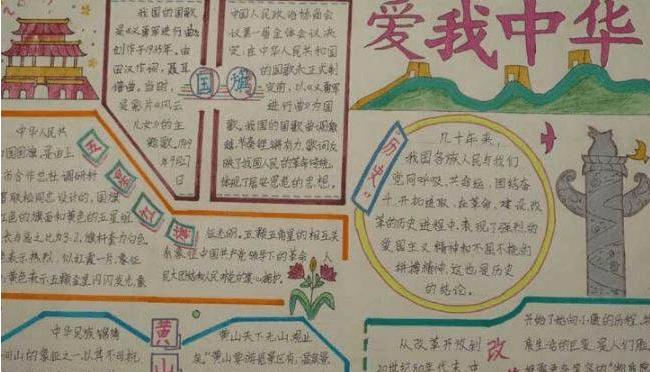 爱我中华
我国的国歌
是《义勇军进行曲》
创作于1935年。由
田汉作词，聂耳
谱曲。当时，
是影片《风云
儿女》的主
题歌。1949
年9月27
日
中国人民政治协商会
议第一届全体会议决
定，在中华人民共和国
的国歌未正式制
定前，以《义勇军
进行曲》为国
歌。我国的国歌曲调激
昂、
歌词反
映了我国人民的革命传统，
体现了居安思危的思想。
国旗
历史
几十年来，
我国各族人民与我们
党同呼吸、共命运、团结奋
斗、开拓进取，在革命、建设、改
革的历史进程中，表现了强烈的
爱国主义精神和不屈不挠的
拼搏精神，这也是历史
的结论。
五星红旗
中华人民共
国国旗，是由上
市合作总社调研科
曾联松同志设计的，国旗
红色的旗面和黄色的五星组
长与高之比为3:2，旗杆套为白色
色表示热烈，似红霞一片，象征
黄色表示五颗金星闪闪发光，象
征光明。五颗五角星的相互关
系象征中国共产党领导下的革命人
民大团结和人民对党的衷心拥护。
黄山
中华民族锦绣
河山的象征之一，以其不可抗
黄山天下无山，观止
矣”黄山
改
从改革开放到
20世纪80年代末，中
开始了她向小康的历程，
康生活的巨变，是人们